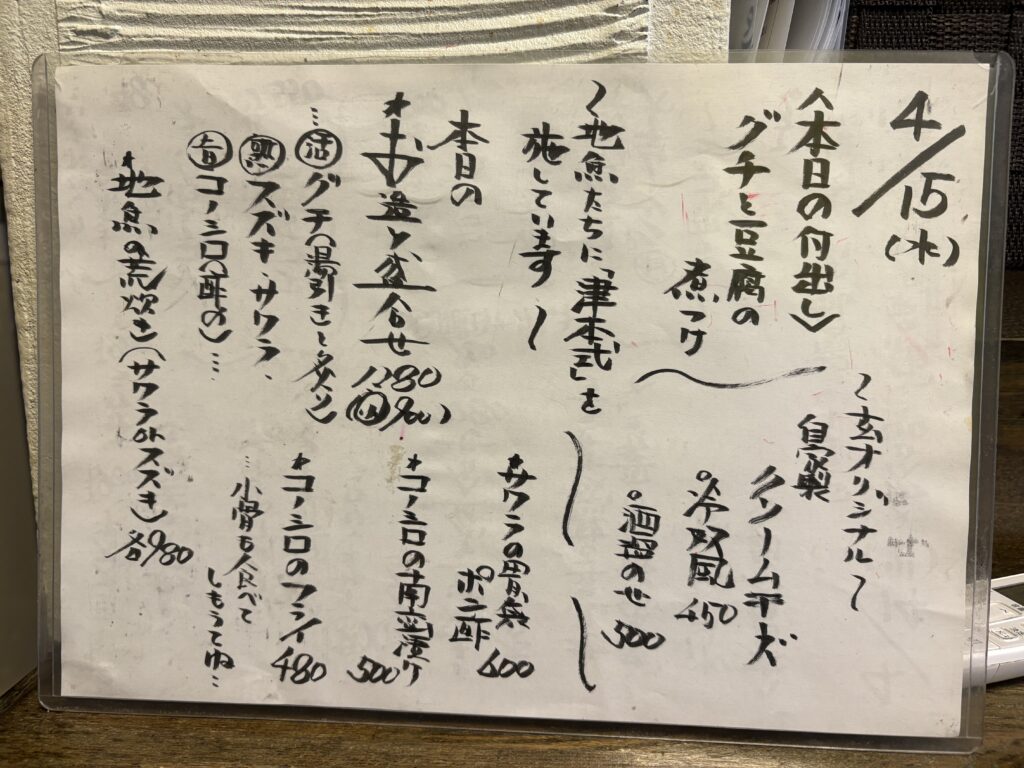 4/15(水)
〈本日の付出し〉
グチと豆腐の
煮つけ
〜玄オリジナル〜
自家製
クリームチーズ
○冷奴風 450
○酒盗のせ 500
〜地魚たちに「津本式」を
施しています〜
本日の
*お造り盛合せ 1180
900
…活グチ(湯引きと炙り)
熟スズキ・サワラ、
旨コノシロ(酢〆)…
*地魚の荒炊き(サワラorスズキ)各980
*サワラの胃袋
ポン酢 600
*コノシロの南蛮漬け 500
*コノシロのフライ 480
…小骨も人食べて
しもうてね…